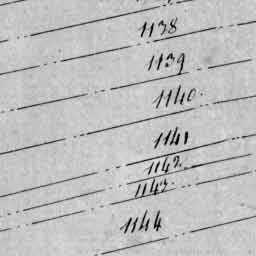 1138
1139
1140.
1141
1142
1143
1144